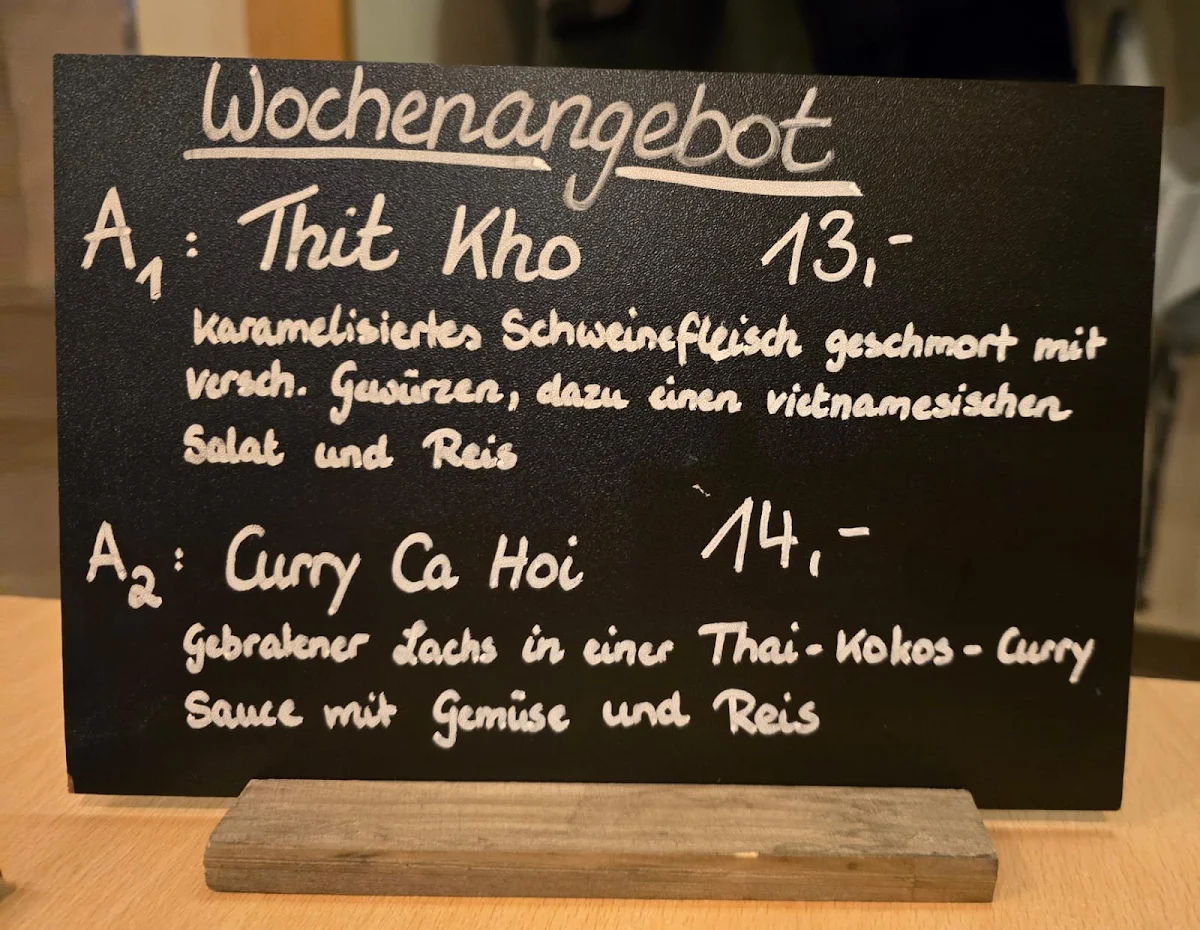 Wochenangebot
A1: Thit Kho 13,-
Karamelisiertes Schweinefleisch geschmort mit
versch. Gewürzen, dazu einen vietnamesischen
Salat und Reis
A2: Curry Ca Hoi 14,-
Gebratener Lachs in einer Thai-Kokos-Curry
Sauce mit Gemüse und Reis